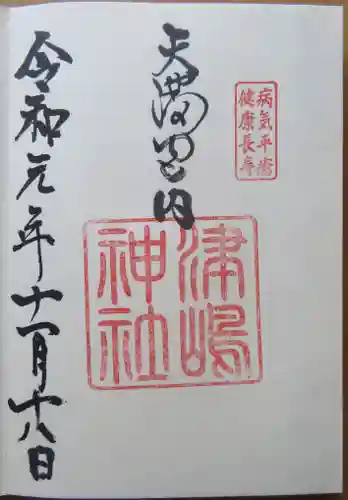 病気平癒
健康長寿
天満宮内
津嶋
神社
令和元年十一月十八日